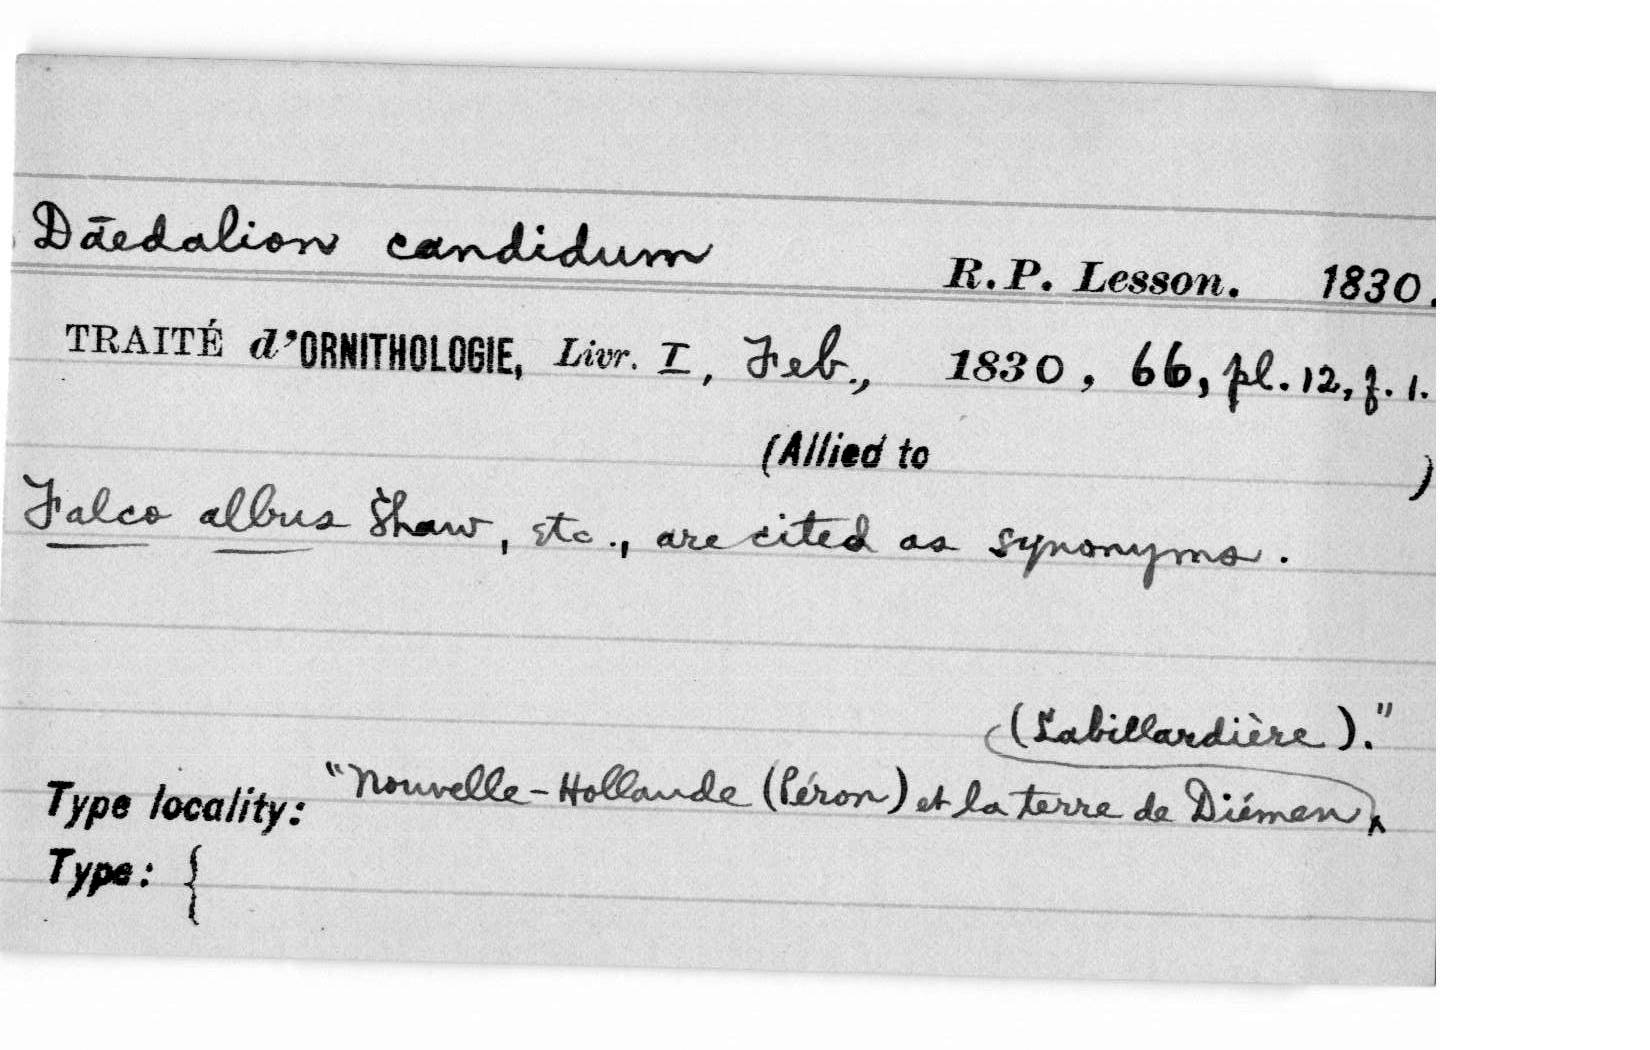 Dāedalion candidum
R.P. Lesson. 1830.
TRAITÉ d'ORNITHOLOGIE, Livr. I, Feb., 1830, 66, pl. 12, f. 1.
(Allied to )
Falco albus Shaw, etc., are cited as synonyms.
(Labillardière)."
Type locality: "Nouvelle-Hollande (Péron) et la terre de Diémen
Type: {